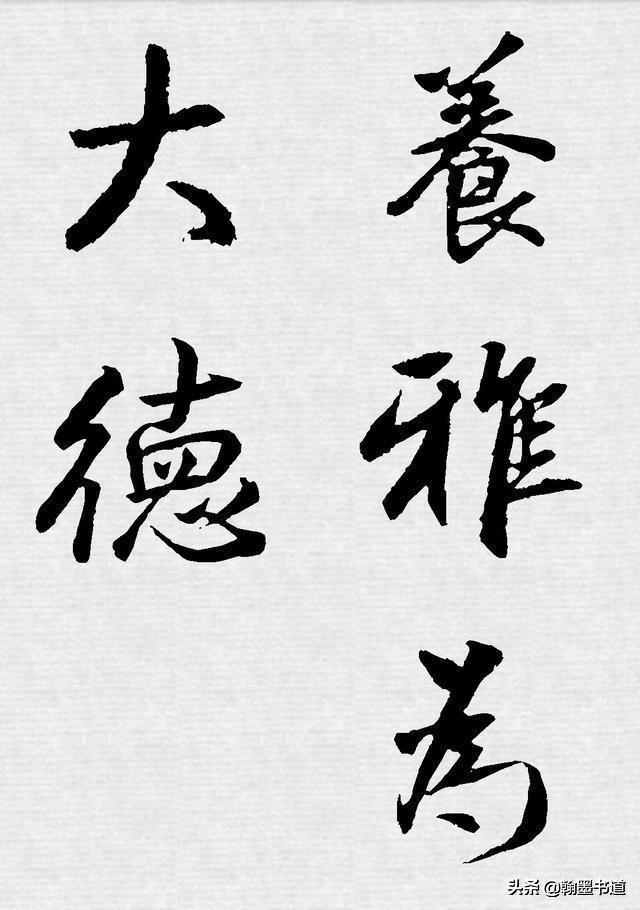 養雅為
大德
头条 @翰墨书道